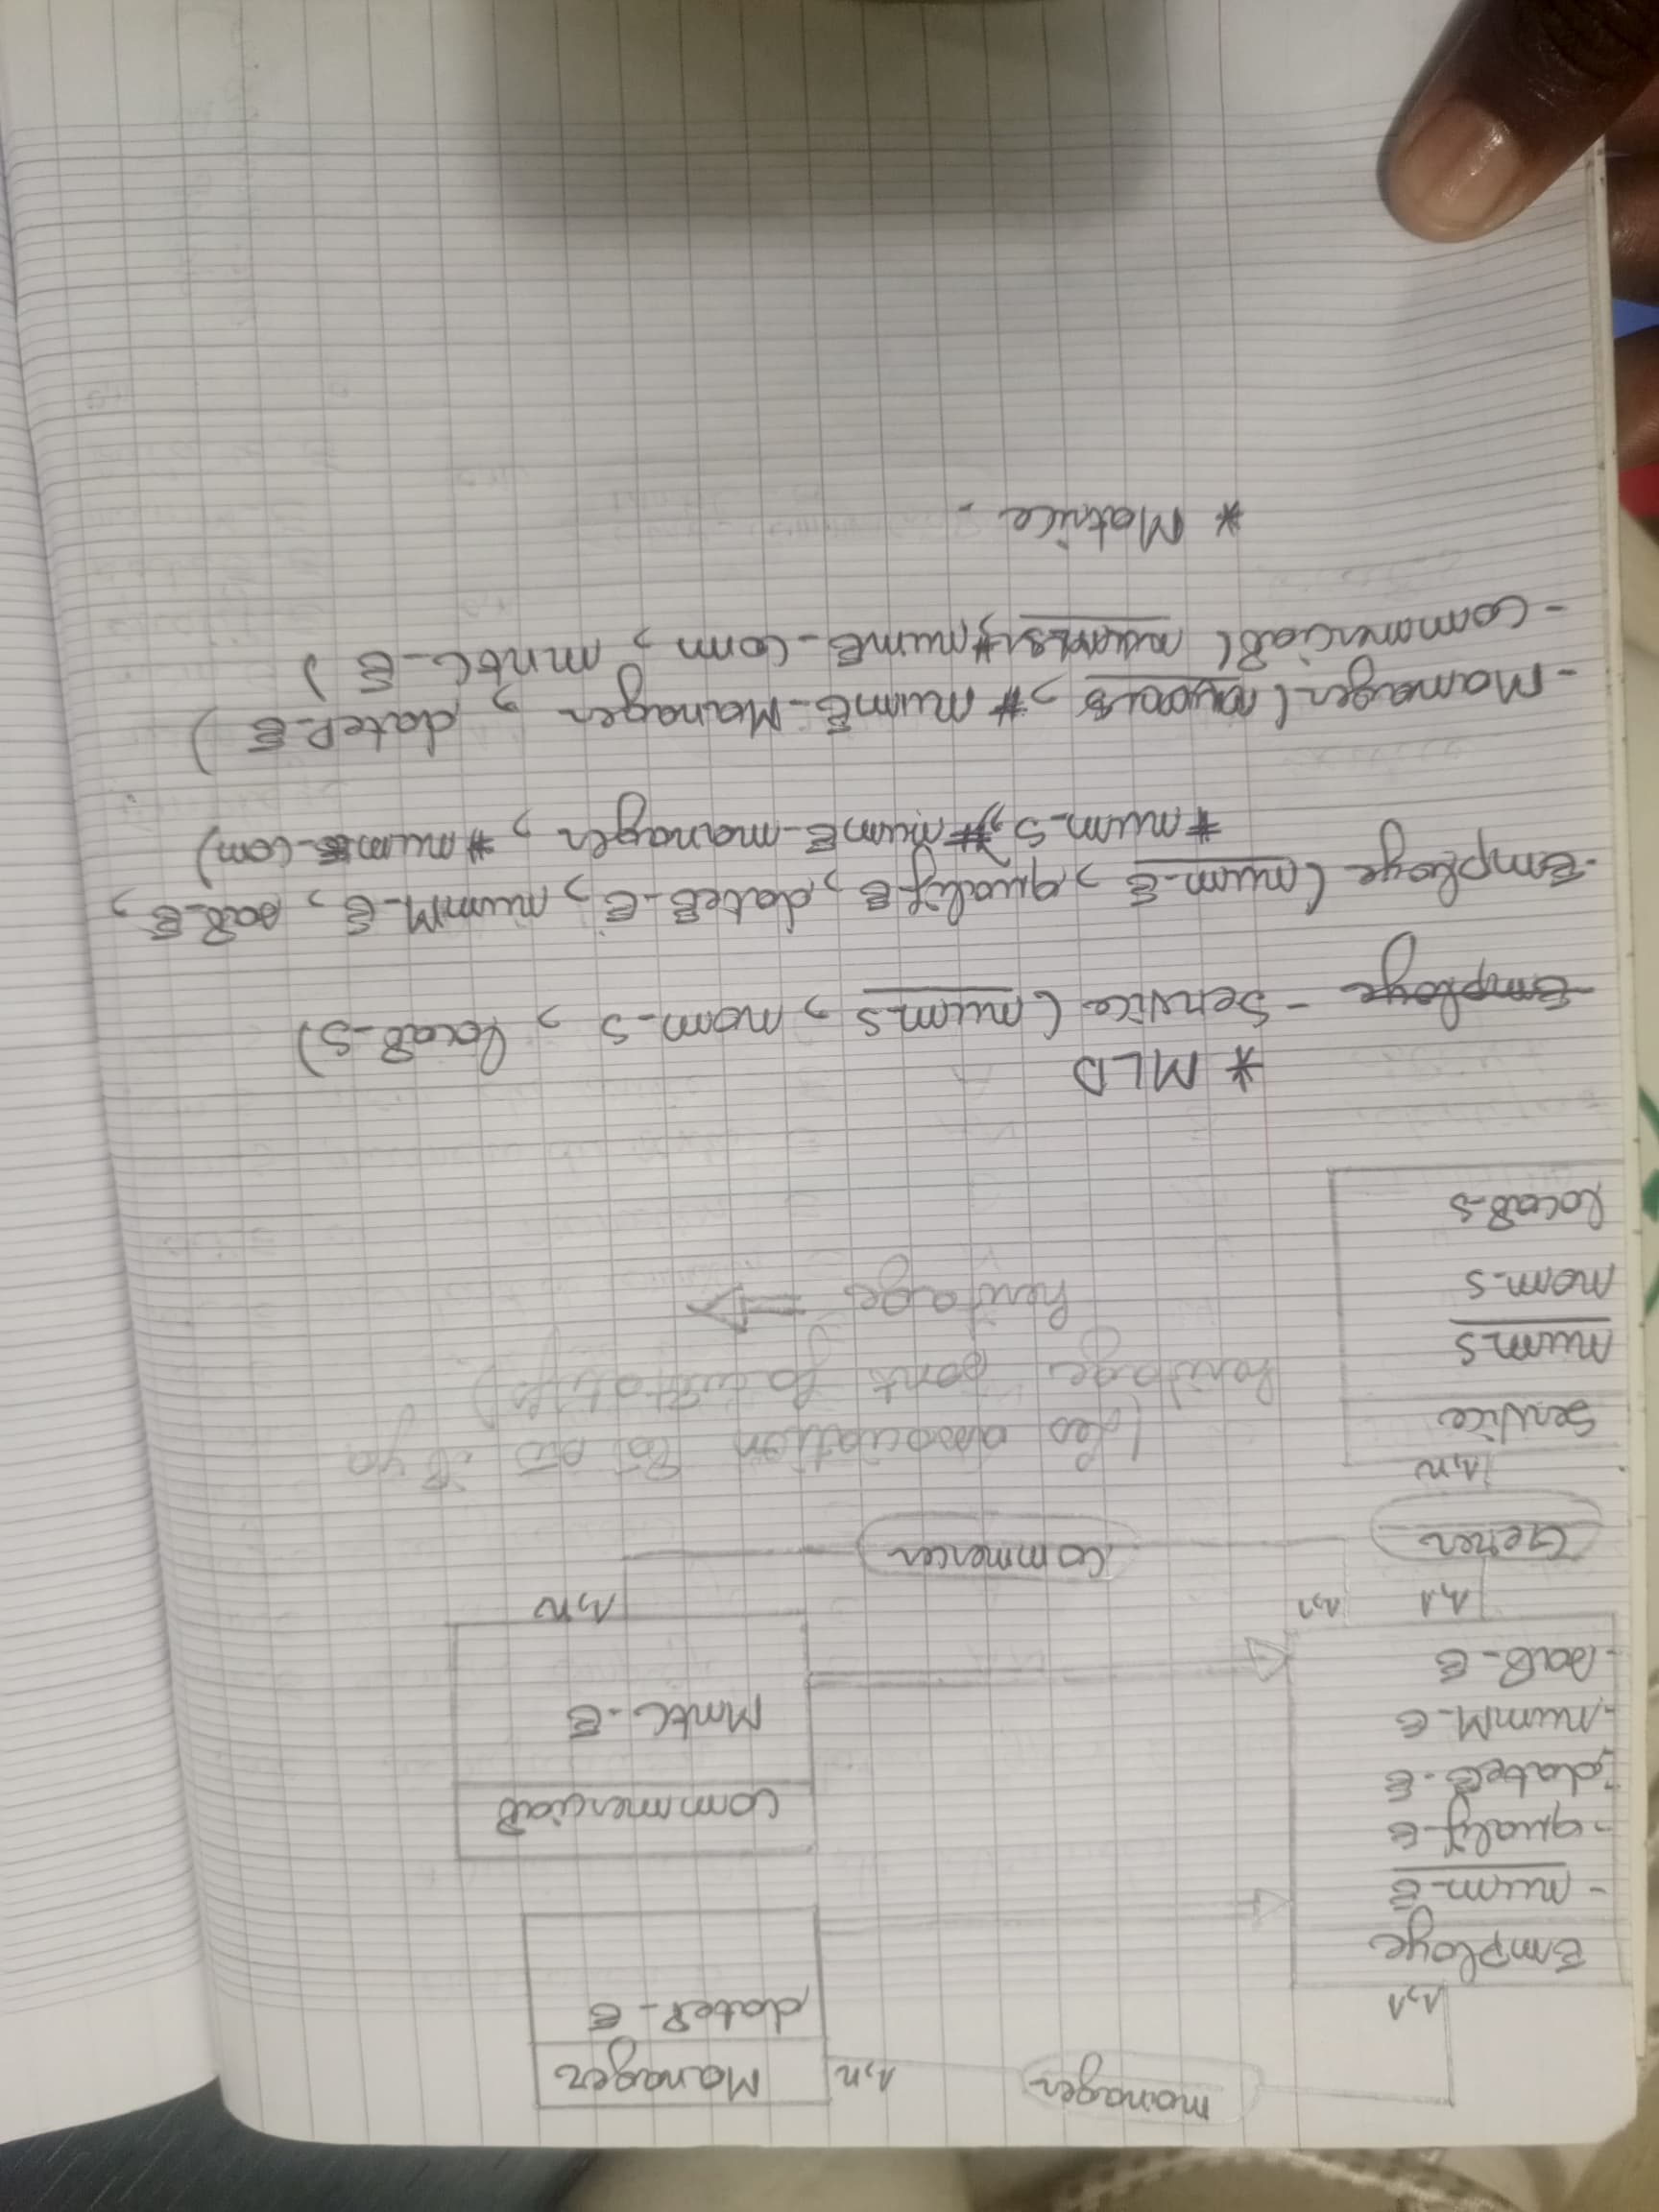 manager
1,1
1,n
Manager
dateP-E
Employe
- num-E
- qualif-E
- dateE-E
- numM-E
- sal-E
Commercial
MntC-E
1,1
1,1
1,n
Gerer
Commercer
1,n
Service
num-S
nom-S
local-S
(les association là où il ya
heritage sont facultatifs)
heritage =▷
* MLD
Employe - Service (num-S, nom-S, local-S)
- Employe (num-E, qualif-E, dateE-E, numM-E, sal-E,
#num-S, #numE-manager, #numE-com)
- Manager( #numE-Manager, dateP-E)
- Commercial( #numE-com, mntC-E)
* Matrice -